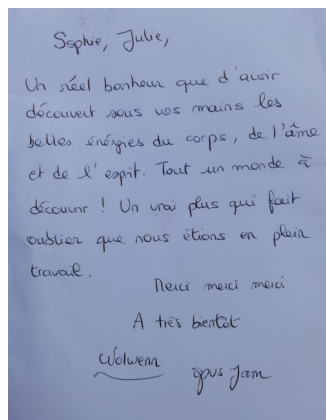 Sophie, Julie,
Un réel bonheur que d'avoir
découvert sous vos mains les
belles énergies du corps, de l'âme
et de l'esprit. Tout un monde à
découvrir ! Un vrai plus qui fait
oublier que nous étions en plein
travail.
Merci merci merci
A très bientôt
Wolwenn
opus Jam